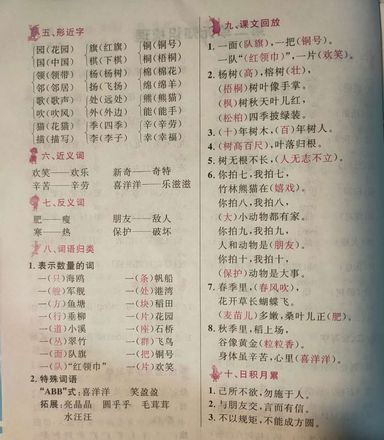 五、形近字
园(花园) 旗(红旗) 铜(铜号)
国(中国) 棋(下棋) 桐(梧桐)
领(领带) 杨(杨树) 棉(棉花)
邻(邻居) 扬(飞扬) 绵(绵羊)
歌(歌声) 处(远处) 熊(熊猫)
吹(吹风) 外(外边) 能(能手)
猫(花猫) 季(四季) 辛(辛劳)
描(描写) 李(李子) 幸(幸福)
六、近义词
欢笑——欢乐 新奇——奇特
辛苦——辛劳 喜洋洋——乐滋滋
七、反义词
肥——瘦 朋友——敌人
寒——热 保护——破坏
八、词语归类
1. 表示数量的词
一(只)海鸥 一(条)帆船
一(艘)军舰 一(处)港湾
一(方)鱼塘 一(块)稻田
一(行)垂柳 一(片)花园
一(道)小溪 一(座)石桥
一(丛)翠竹 一(群)飞鸟
一(面)队旗 一(把)铜号
一(队)“红领巾” 一(片)欢笑
2. 特殊词语
“ABB”式:喜洋洋 笑盈盈
拓展:亮晶晶 圆乎乎 毛茸茸
水汪汪
九、课文回放
1. 一面(队旗),一把(铜号)。
一队“(红领巾)”,一片(欢笑)。
2. 杨树(高),榕树(壮),
(梧桐)树叶像手掌。
(枫)树秋天叶儿红,
(松柏)四季披绿装。
3. (十)年树木,(百)年树人。
4. (树高百尺),叶落归根。
5. 树无根不长,(人无志不立)。
6. 你拍七,我拍七,
竹林熊猫在(嬉戏)。
你拍八,我拍八,
(大)小动物都有家。
你拍九,我拍九,
人和动物是(朋友)。
你拍十,我拍十,
(保护)动物是大事。
7. 春季里,(春风吹),
花开草长蝴蝶飞。
(麦苗儿)多嫩,桑叶儿正(肥)。
8. 秋季里,稻上场,
谷像黄金(粒粒香)。
身体虽辛苦,心里(喜洋洋)。
十、日积月累
1. 己所不欲,勿施于人。
2. 与朋友交,言而有信。
3. 不以规矩,不能成方圆。